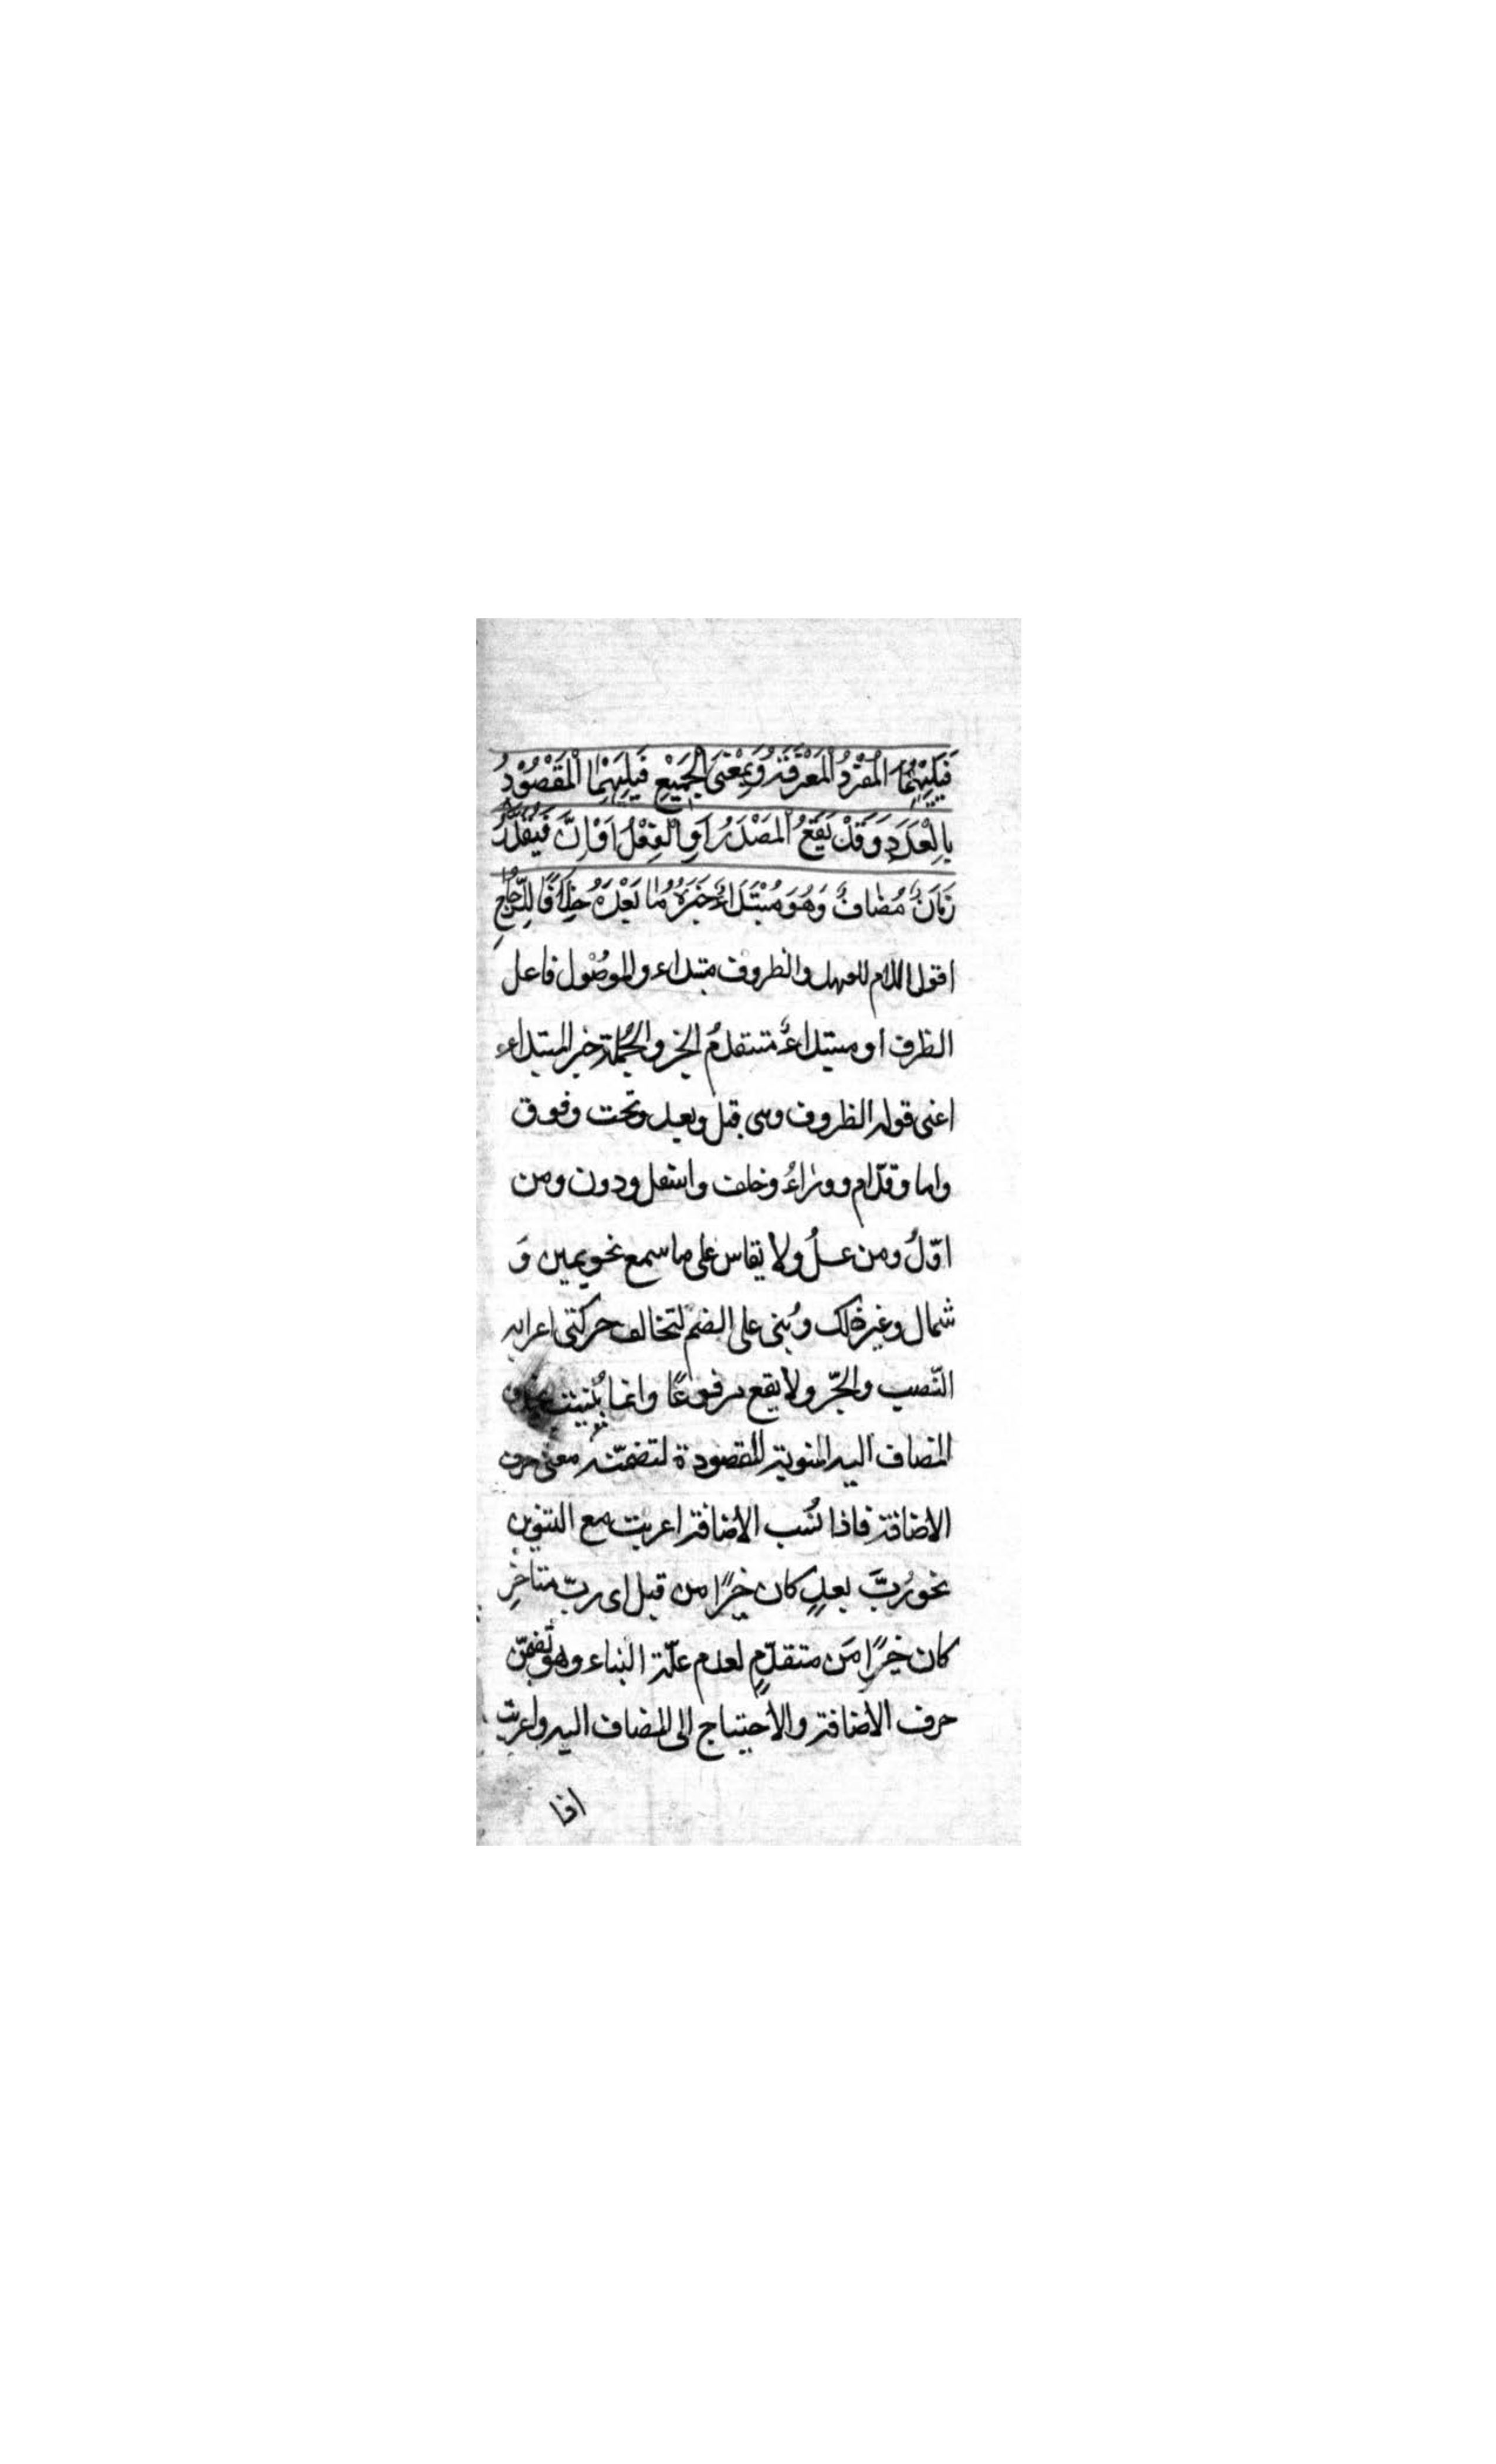 فَيَلِيْهُمَا الْمُفْرَدُ الْمَعْرِفَةُ وَبِمَعْنَى الْجَمِيْعِ فَيَلِيْهِمَا الْمَقْصُوْدُ
بِالْعَدَدِ وَقَدْ يَقَعُ الْمَصْدَرُ اَوِ الْفِعْلُ اَوْ اِنَّ فَيُقَدَّرُ
زَمَانٌ مُضَافٌ وَهُوَ مُبْتَدَاءٌ خَبَرُهُ مَا بَعْدَهُ خِلَافًا لِلزَّجَّاجِ
اقول اللام للعهد والظروف مبتداء والموصول فاعل
الظرف او مبتداءٌ متقدمُ الخبر والجُملة خبر المبتداء
اعنى قوله الظروف وهى قبل وبعد وتحت وفوق
واما وقدّام ووراءُ وخلف واسفل ودون ومن
اوّلُ ومن علُ ولا يقاس على ما سمع نحو يمين وَ
شمال وغير ذلك وبُنى على الضم لتخالف حركتى اعرابه
النّصب والجّر ولا يقع مرفوعًا وانما بُنيت
المضاف اليه المنوية المقصودة لتضمّنه معنى حرف
الاضافة فاذا نُسب الاضافة اعربت مع التنوين
نحو رُبَّ بعدٍ كان خيرًا من قبل اى ربّ متاخرٍ
كان خيرًا مَن متقدّمٍ لعدم علّة البناء وهو تضمّن
حرف الاضافة والاحتياج الى المضاف اليه واعربت
اذا